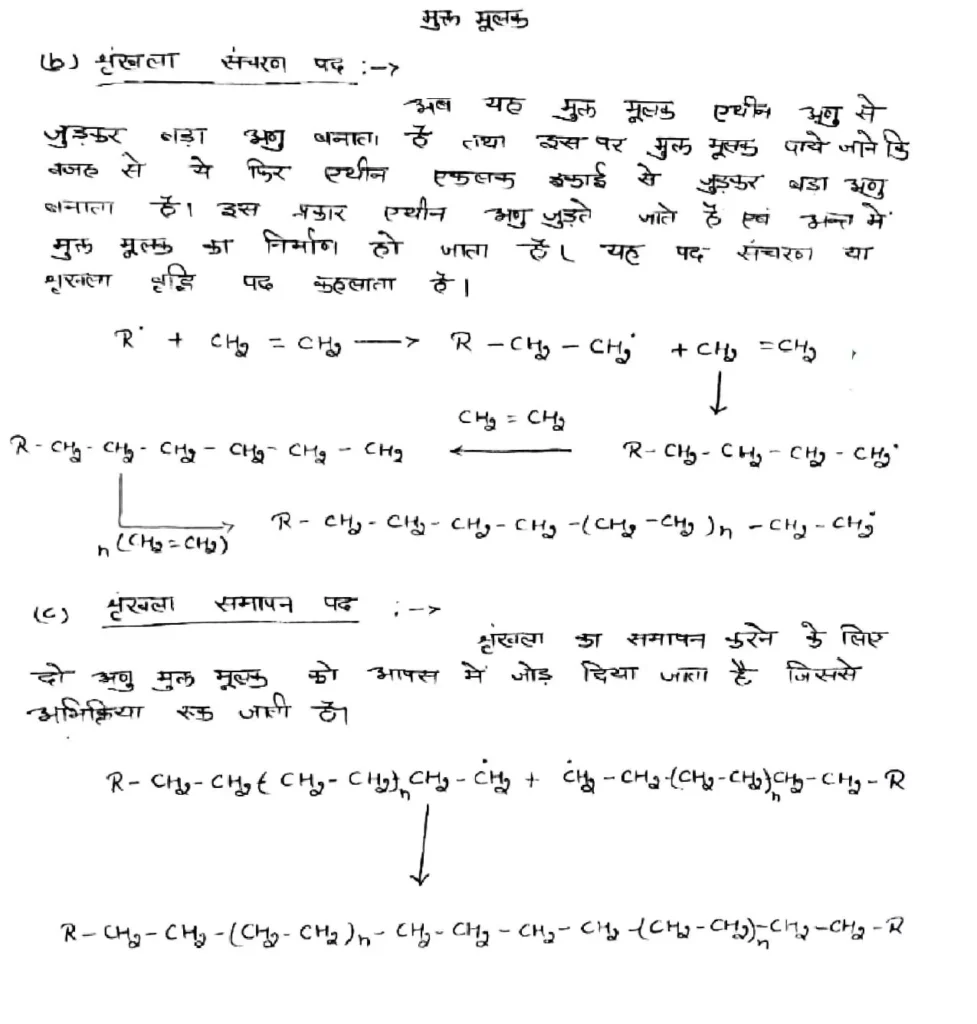 मुक्त मूलक
(b) श्रृंखला संचरण पद :->
अब यह मुक्त मूलक एथीन अणु से
जुड़कर बड़ा अणु बनाता है तथा इस पर मुक्त मूलक पाये जाने कि
वजह से ये फिर एथीन एकलक इकाई से जुड़कर बडा अणु
बनाता है। इस प्रकार एथीन अणु जुड़ते जाते है एवं अन्त में
मुक्त मूलक का निर्माण हो जाता है। यह पद संचरण या
श्रृखला वृद्धि पद कहलाता है।
R˙ + CH₂ = CH₂ ⟶ R – CH₂ – CH₂˙ + CH₂ = CH₂
↓
CH₂ = CH₂
R - CH₂ - CH₂ - CH₂ - CH₂ - CH₂ - CH₂ ⟵ R - CH₂ - CH₂ - CH₂ - CH₂˙
R - CH₂ - CH₂ - CH₂ - CH₂ -(CH₂ - CH₂)n - CH₂ - CH₂˙
n(CH₂=CH₂)
(c) श्रृंखला समापन पद :->
श्रृंखला का समापन करने के लिए
दो अणु मुक्त मूलक को आपस में जोड़ दिया जाता है जिससे
अभिक्रिया रूक जाती है।
R - CH₂ - CH₂ ( CH₂ - CH₂)n CH₂ - ĊH₂ + ĊH₂ - CH₂ -(CH₂-CH₂)n CH₂ - CH₂ - R
↓
R - CH₂ - CH₂ -(CH₂ - CH₂)n - CH₂ - CH₂ - CH₂ - CH₂ -(CH₂ - CH₂)n - CH₂ - CH₂ - R